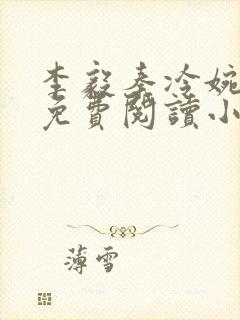 李毅秦冷婉
免費閱讀小
薄雪